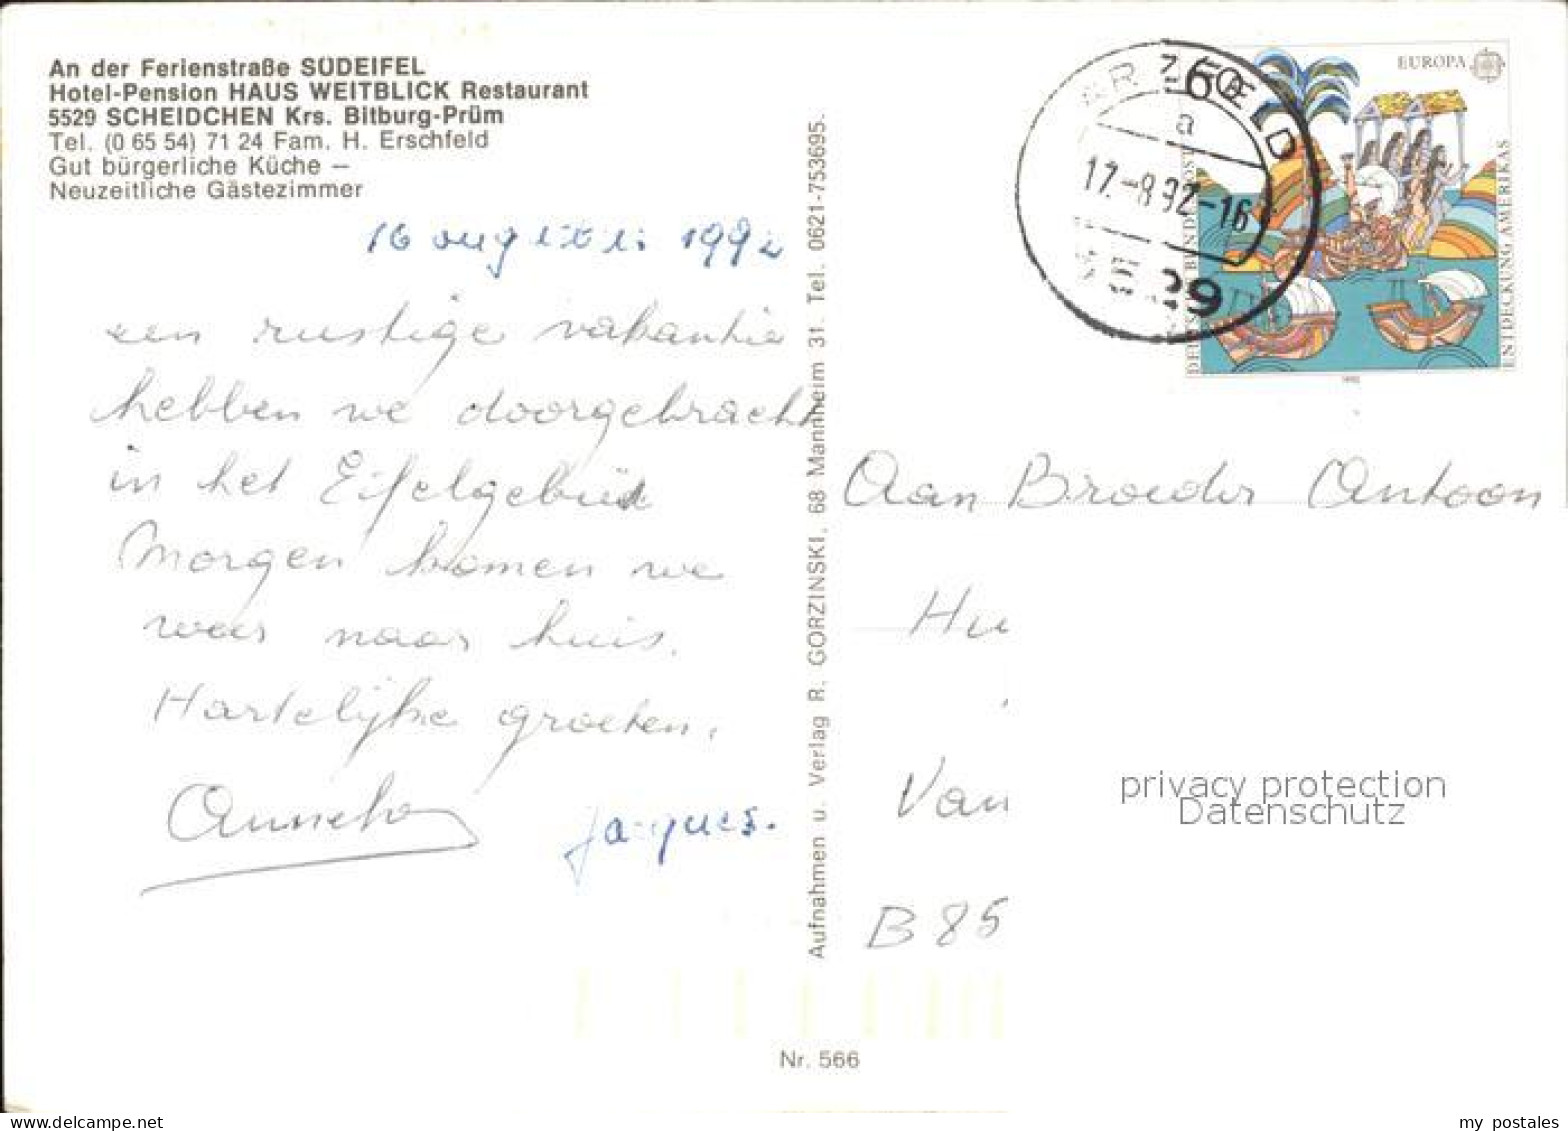 An der Ferienstraße SÜDEIFEL
Hotel-Pension HAUS WEITBLICK Restaurant
5529 SCHEIDCHEN Krs. Bitburg-Prüm
Tel. (0 65 54) 71 24 Fam. H. Erschfeld
Gut bürgerliche Küche –
Neuzeitliche Gästezimmer
16 augustus 1992
een rustige vakantie
hebben we doorgebracht
in het Eifelgebied
Morgen komen we
weer naar huis.
Hartelijke groeten.
Jacques.
Aufnahmen u. Verlag R. GORZINSKI, 68 Mannheim 31. Tel. 0621-753695.
Nr. 566
60
EUROPA
DEUTSCHE BUNDESPOST
ENTDECKUNG AMERIKAS
1992
ARZFELD
a
17.-8.92-16
5529
Aan Broeder Antoon
Hu
Van
B 85
privacy protection
Datenschutz
my postales